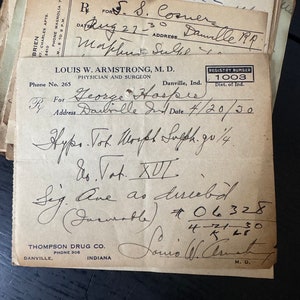 S. Cosner
Aug 27-30 Danville R.R.
DATE
ADDRESS
Morphine Sulph
LOUIS W. ARMSTRONG, M. D.
PHYSICIAN AND SURGEON
REGISTRY NUMBER
1003
Dist. of Ind.
Phone No. 265
Danville, Ind.
For George Hospie
Address Danville Ind Date 4/20/30
Hypo. Tab Morph Sulph. gr 1/4
No. Tab. XVI
Sig. One as directed
# 06328
4-21-30
THOMPSON DRUG CO.
PHONE 306
DANVILLE, INDIANA
Louis W. Armst
M. D.